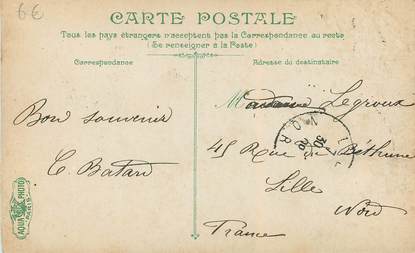 6€
CARTE POSTALE
Tous les pays étrangers n'acceptent pas la Correspondance au recto
(Se renseigner à la Poste)
Correspondance
Adresse du destinataire
Bon souvenir
C. Batard
Madame Legroux
45 Rue de Béthune
Lille
Nord
France
AQUA PHOTO
PARIS